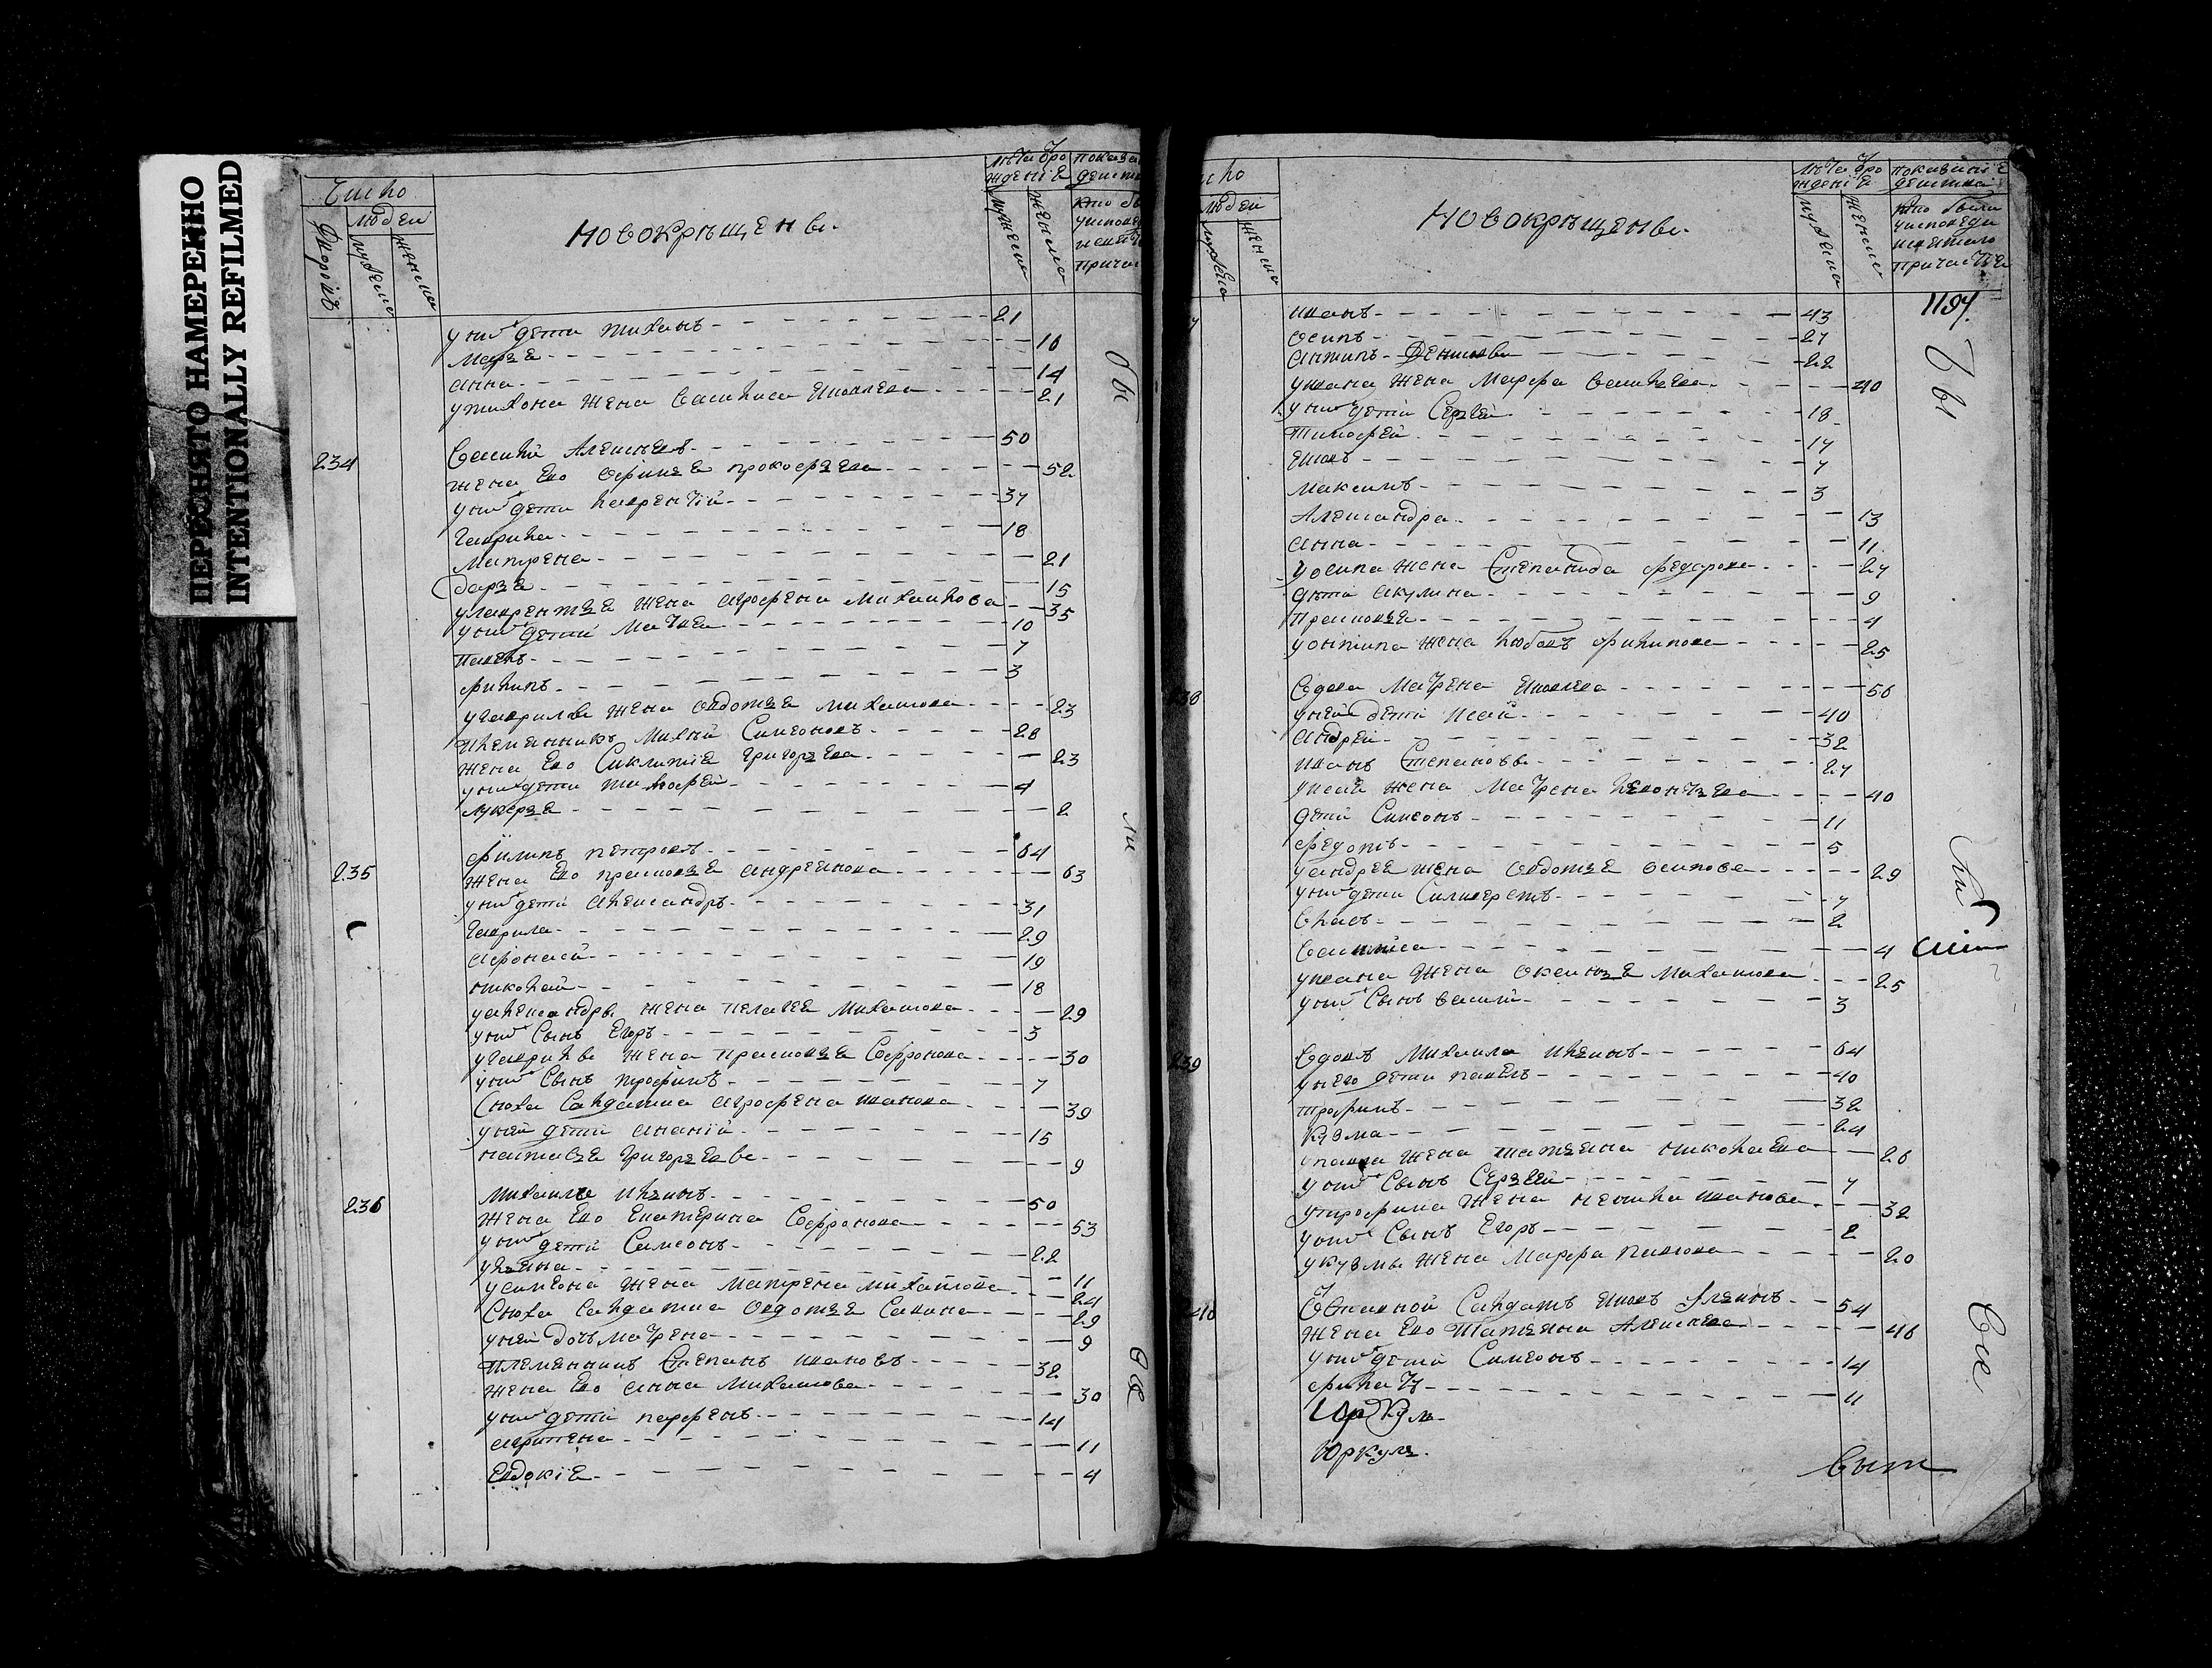 ПЕРЕСНЯТО НАМЕРЕННО
INTENTIONALLY REFILMED
Число
людей
Дворовъ
мужеска
женска
Новокрѣщены.
мужеска
женска
у нихъ дети тиханъ 21
Марѳа 16
анна 14
у тихона жена василиса яковлева 21
234 василей алексеевъ 50
жена ево прокофьева 52
у нихъ дети лаврентїй 37
гаврила 18
Матрена 21
дарья 15
у лаврентья жена агрофена михаилова 35
у нихъ дети матвеи 10
павелъ 7
филипъ 3
у гаврилы жена овдотья михаилова 23
племянникъ Симеоновъ 28
жена ево григорьева 23
у нихъ дети тимофей 4
лукерья 2
235 филипъ петровъ 64
жена ево прасковья андреянова 63
у нихъ дети александръ 31
гаврила 29
афонасей 19
николай 18
у александры жена пелагея михаилова 29
у нихъ сынъ егоръ 3
у гаврилы жена прасковья софронова 30
у нихъ сынъ трофимъ 7
сноха салдатка агрофена иванова 39
у ней дети ананїй 15
наталья григорьевы 9
236 михаила ильинъ 50
жена ево екатерина софронова 53
у нихъ дети симеонъ 22
ульяна 11
у симеона жена матрена михайлова 24
сноха салдатка овдотья савина 29
у ней дочь матрена 9
племянникъ степанъ ивановъ 32
жена ево анна михаилова 30
у нихъ дети парфенъ 14
агрипена 11
евдокїя 4
людей
мужеска
женска
Новокрѣщены.
мужеска
женска
кто были
у исповеди
1197.
иванъ 43
осипъ 27
антипъ Денисовы 22
у ивана жена марфа василева 40
у нихъ дети сергей 18
тимофей 14
яковъ 7
максимъ 3
александра 13
анна 11
у осипа жена степанида федорова 27
дети акулина 9
прасковья 4
у онтипа жена любовь филипова 25
238 вдова матрена яковлева 56
у ней дети исай 40
андрей 32
иванъ степановы 27
у исая жена матрена леонтьева 40
дети симеонъ 11
федотъ 5
у андрея жена овдотья осипова 29
у нихъ дети силиверстъ 7
власъ 2
василиса 4
у ивана жена оксинья михаилова 25
у нихъ сынъ василий 3
239 вдовъ михаила ильинъ 64
у него дети павелъ 40
трофимъ 32
кузма 24
у павла жена татьяна николаева 26
у нихъ сынъ сергей 7
у трофима жена иванова 32
у нихъ сынъ егоръ 2
у кузмы жена марфа павлова 20
240 отставной салдатъ яковъ 54
жена ево татьяна алексеева 46
у нихъ дети симеонъ 14
филатъ 11